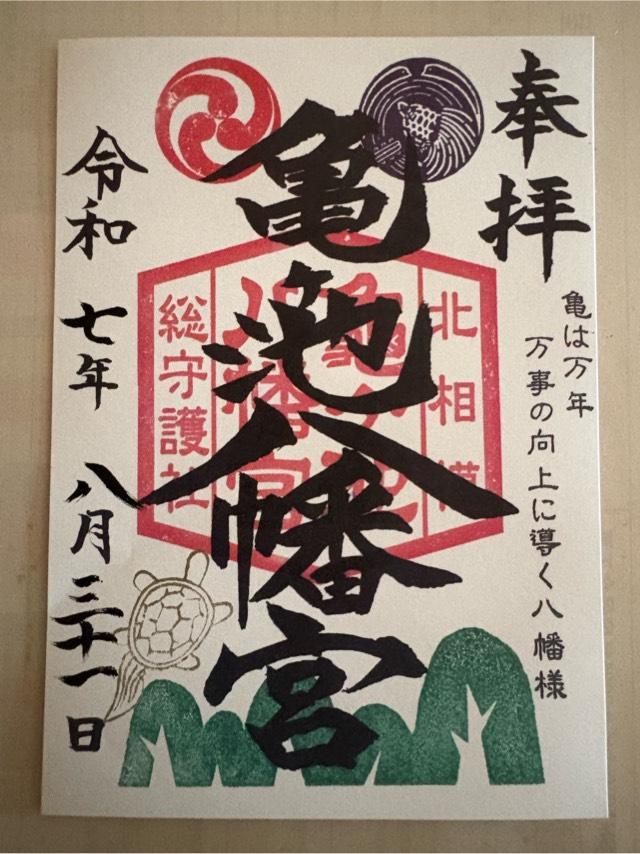 奉拝
亀は万年
万事の向上に導く八幡様
亀池八幡宮
北相模
総守護社
令和七年八月三十一日